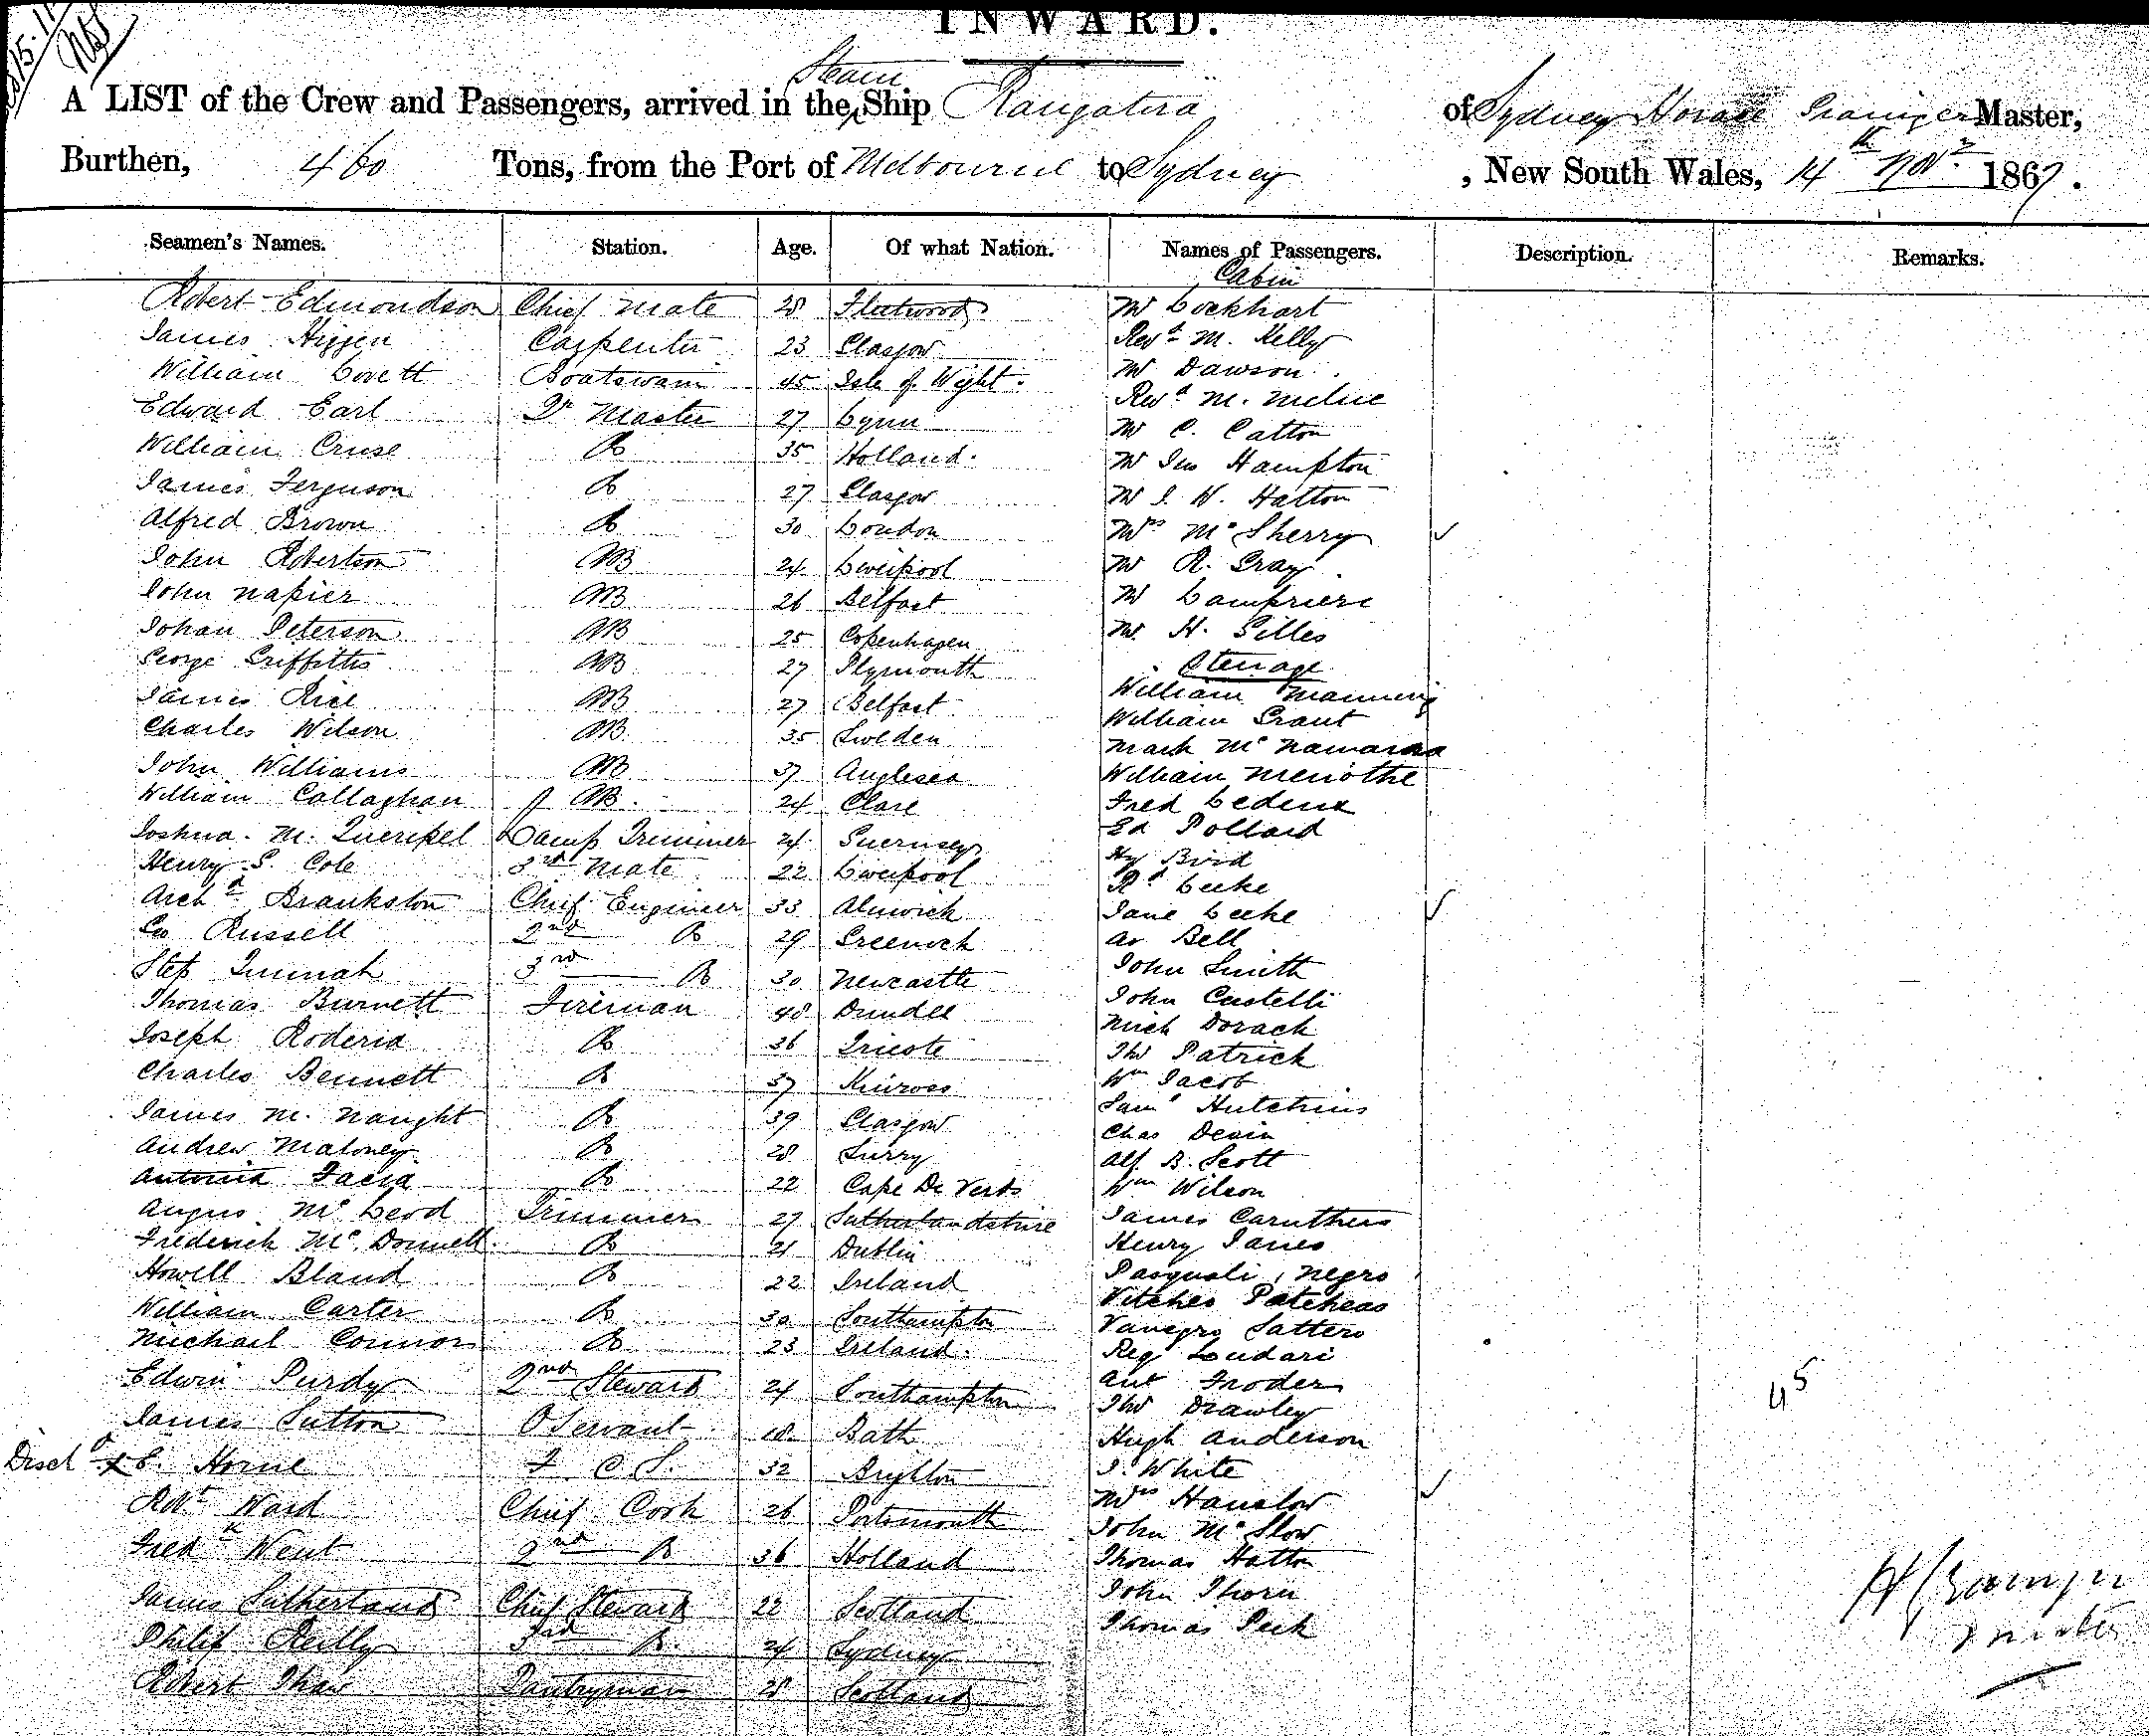 INWARD.
A LIST of the Crew and Passengers, arrived in the Steam Ship Rangatira of Sydney Horace Master,
Burthen, 460 Tons, from the Port of Melbourne to Sydney, New South Wales, 14th Novr 1867.
Seamen's Names. Station. Age. Of what Nation. Names of Passengers. Description. Remarks.
Cabin
Robert Edmondson Chief Mate 28 Fleetwood Mr Lockhart
James Higgen Carpenter 23 Glasgow Revd M. Kelly
William Lovett Boatswain 45 Isle of Wight. Mr Dawson
Edward Earl Qr Master 27 Lynn Revd M.
William Cruse Do 35 Holland. Mr C. Catton
James Ferguson Do 27 Glasgow Mr Jas Hampton
Alfred Brown Do 30 London Mr J. H. Hatton
John Robertson AB 24 Liverpool Mrs McSherry
John Napier AB 26 Belfast Mr R. Gray
Johan Peterson AB 25 Copenhagen Mr Lampriere
George Griffiths AB 27 Plymouth Mr H. Gilles
Steerage
James Rice AB 27 Belfast William Manning
Charles Wilson AB 35 Sweden William Grant
John Williams AB 37 Anglesea Mark McNamara
William Callaghan AB 24 Clare William
Joshua M. Queripel Lamp Trimmer 24 Guernsey Fred
Henry S. Cole 3rd Mate 22 Liverpool Ed Pollard
Archd Brankston Chief Engineer 33 Alnwick Hy Bird
Geo Russell 2nd Do 29 Greenock Rd Leeke
Step 3rd Do 30 Newcastle Jane Leeke
Thomas Burnett Fireman 48 Dundee Ar Bell
Joseph Roderia Do 36 Trieste John Smith
Charles Bennett Do 37 Kinross John Castelli
James M. Naught Do 39 Glasgow Mich Dorach
Andrew Maloney Do 28 Surry Thos Patrick
Antonia Do 22 Cape De Verds Wm Jacob
Angus McLeod Trimmer 27 Sutherlandshire Saml Hutchins
Frederick McDonnell Do 21 Dublin Chas Devin
Howell Bland Do 22 Ireland Alf. B. Scott
William Carter Do 30 Southampton Wm Wilson
Michael Connor Do 23 Ireland. James Caruthers
Edwin Purdy 2nd Steward 24 Southampton Henry Janes
James Sutton O Servant 18 Bath Pasquali Negro
Dischd x E. Horne F C S. 32 Brighton Vitches Patcheas
Robt Ward Chief Cook 26 Portsmouth Vanegro Sattero
Fredk Went 2nd Do 36 Holland Reg Loudari
James Sutherland Chief Steward 22 Scotland Ant Froder
Philip Reilly 3rd Do 24 Sydney Thos Drawley
Robert Shaw Pantryman 28 Scotland Hugh Anderson
J. White
Mrs Hanslow
John McSlow
Thomas Hatton
John Thorn
Thomas Peek
45
Master